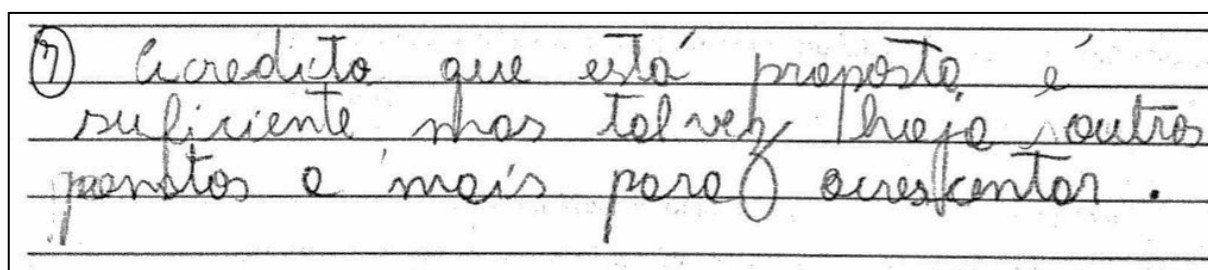 ⑦ Acredito que está proposta é
suficiente mas talvez haja outros
pontos a mais para acrescentar.